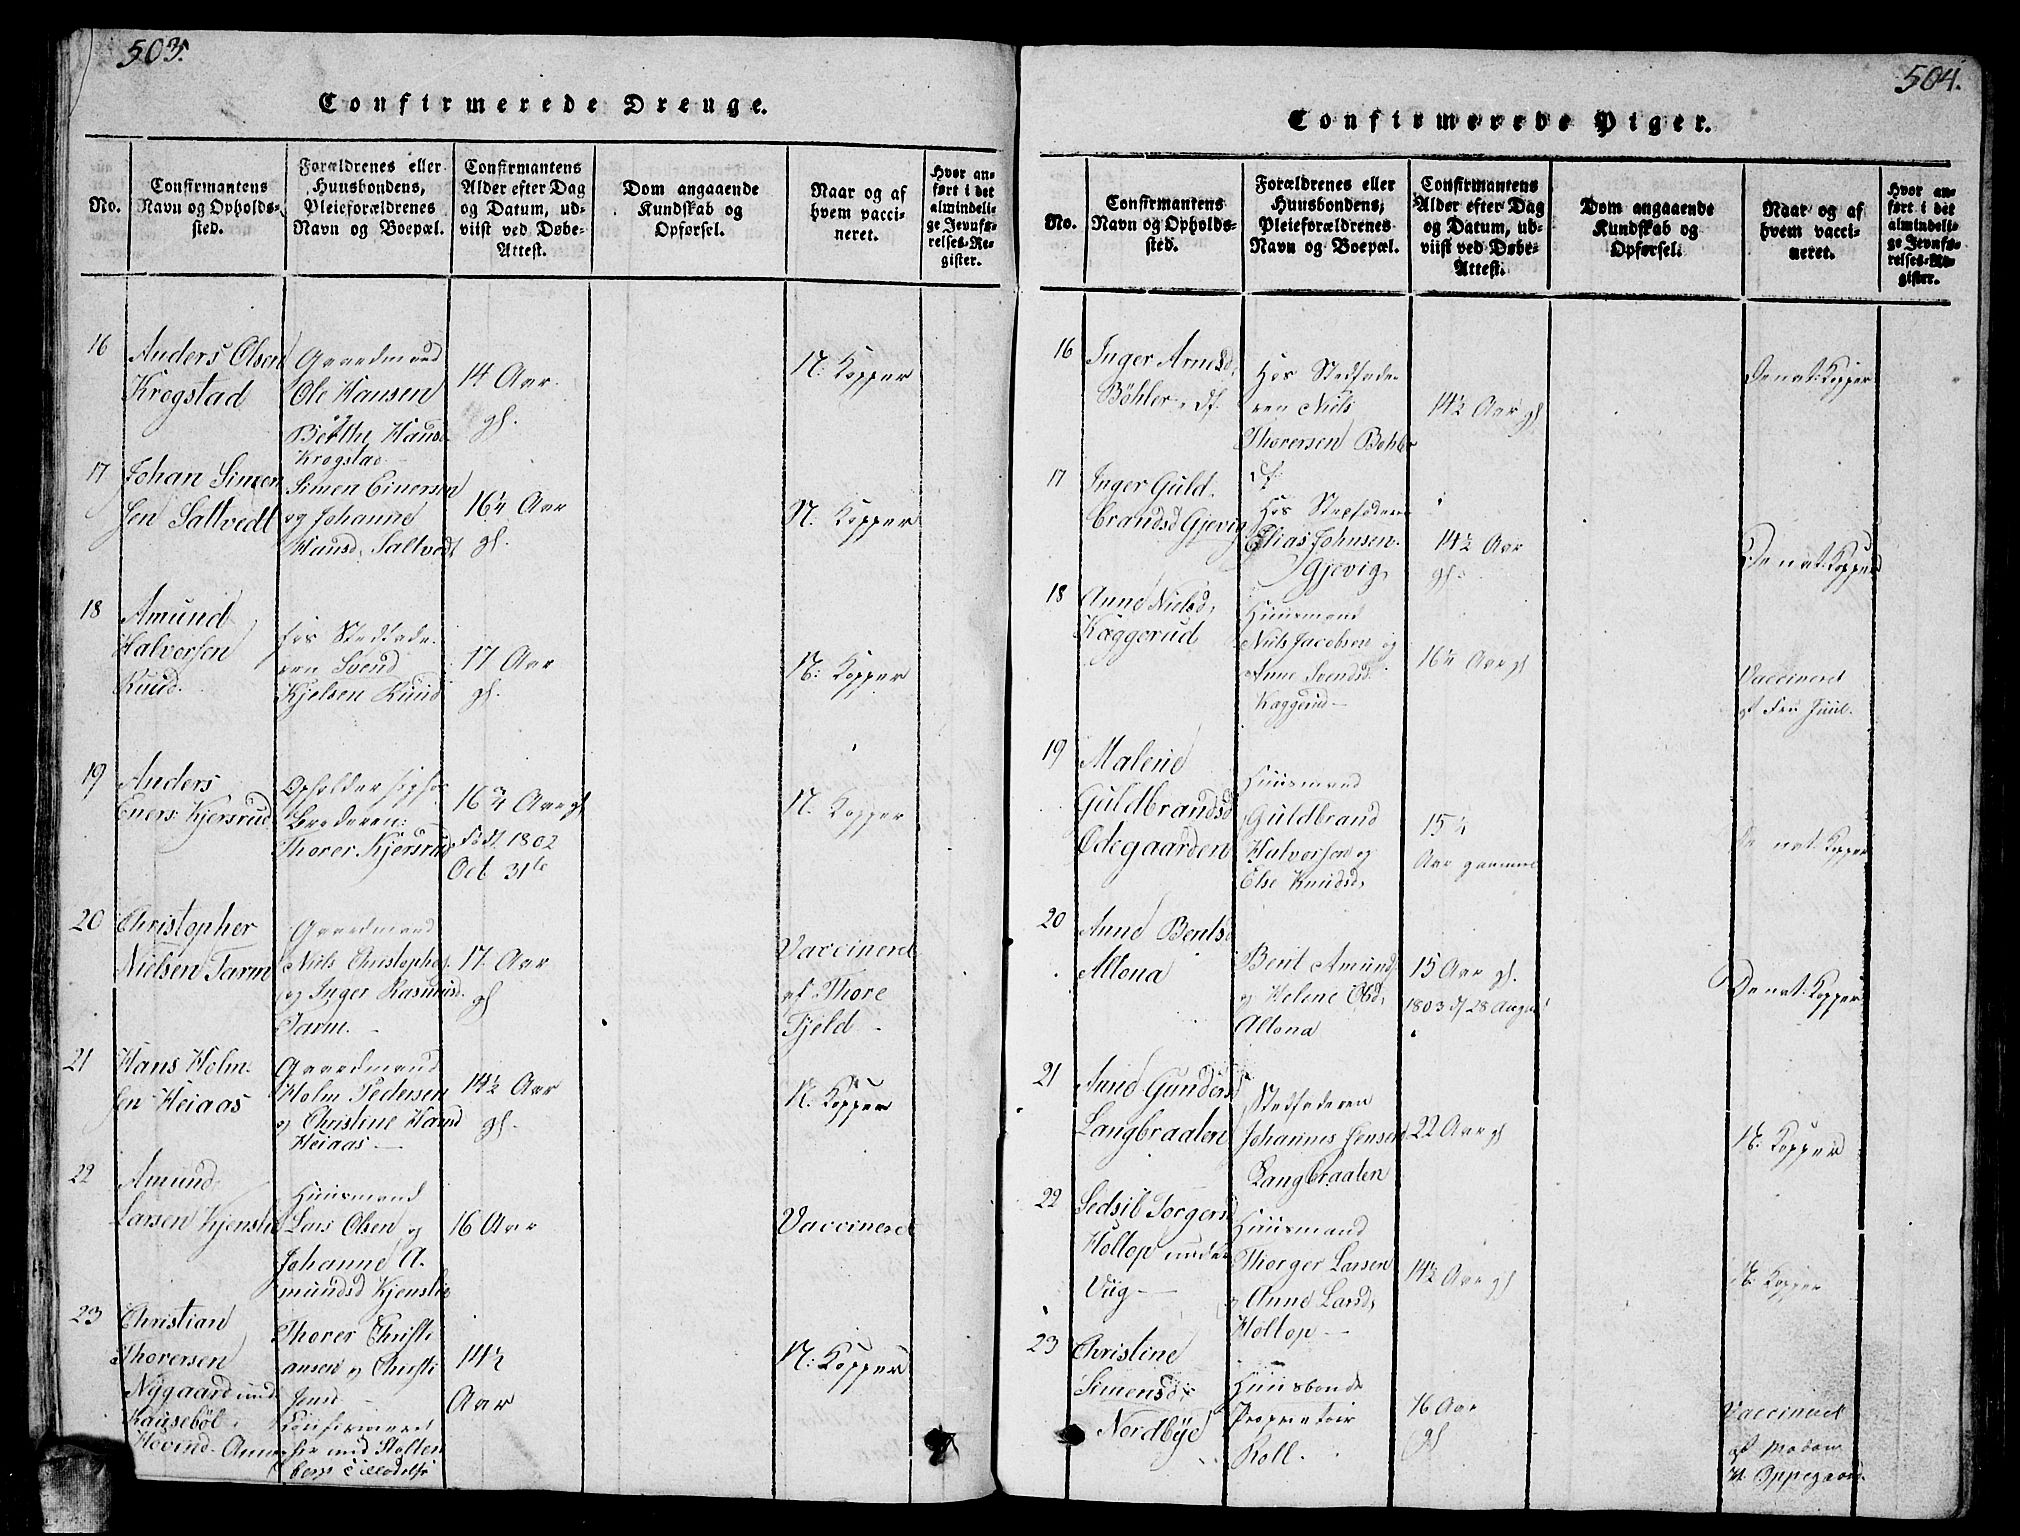 503.
Confirmerede Drenge.
No.
Confirmantens
Navn og Opholds-
sted.
Forældrenes eller
Huusbondens,
Pleieforældrenes
Navn og Boepæl.
Confirmantens
Alder efter Dag
og Datum, ud-
viist ved Døbe-
Attest.
Dom angaaende
Kundskab og
Opførsel.
Naar og af
hvem vacci-
neret.
Hvor an-
ført i det
almindeli-
ge Jevnfø-
relses-Re-
gister.
16
Anders Olsen
Krogstad
Gaardmand
Ole Hansen
og
Berthe Hansd
Krogstad
14 Aar
gl.
N: Kopper
17
Johan Simen
sen Saltvedt
Simen Einersen
og Johanne
Hansd. Saltvedt
16¼ Aar
gl.
N: Kopper
18
Amund
Halvorsen
Ruud.
hos Stedfade-
ren Svend
Kjelsen Ruud
17 Aar
gl.
N: Kopper
19
Anders
Eners: Kjersrud
Opholder sig hos
Broderen:
Thorer Kjersrud
16¾ Aar gl
Född 1802
Oct 31te
N. Kopper
20
Christopher
Nielsen Tarm
Gaardmand
Niels Christophs
og Inger Rasmusd.
Tarm. –
17 Aar
gl
Vaccineret
af Thore
Fjeld –
21
Hans Holm-
sen Heiaas
Gaardmand
Holm Pedersen
og Christine Hansd
Heiaas –
14½ Aar
gl.
N: Kopper
22
Amund
Larsen Kjenslie
Huusmand
Lars Olsen og
Johanne A-
mundsd Kjenslie
16 Aar
Vaccineret
23
Christian
Thorersen
Nygaard und
Kauseböl i
Hovind Annex
Thorer Christi
ansen og Christi
Jensd –
Confirmeret
her med Stolten
bergs Tilladelse
14½
Aar
N: Kopper
504.
Confirmerede Piger.
No.
Confirmantens
Navn og Opholds-
sted.
Forældrenes eller
Huusbondens,
Pleieforældrenes
Navn og Boepæl.
Confirmantens
Alder efter Dag
og Datum, ud-
viist ved Døbe-
Attest.
Dom angaaende
Kundskab og
Opførsel.
Naar og af
hvem vacci-
neret.
Hvor an-
ført i det
almindeli-
ge Jevnfø-
relses-Re-
gister.
16
Inger Arnesd,
Böhler
Hos Stedfade-
ren Niels
Thorersen Böhler
14½ Aar gl
De nat: Kopper
17
Inger Guld-
brandsd Gjevig
Hos Stepfaderen
Elias Johnsen
Gjevig,
14½ Aar
gl.
De nat: Kopper
18
Anne Nielsd,
Kaggerud
Huusmand
Niels Jacobsen og
Anne Svendsd.
Kaggerud –
16¼ Aar gl
Vaccineret
af Fru Juul.
19
Malene
Guldbrandsd
Ödegaarden
Huusmand
Guldbrand
Halvorsen og
Else Knudsd,
15¼
Aar gammel
De nat: Kopper
20
Anne Bentsd
Altona
Bent Amunds
og Helene Olsd,
Altona
15 Aar gl.
1803 d/ 28 August
De nat: Kopper
21
Anne Gundersd
Langbraaten
Stedfaderen
Johannes Jensen
Langbraaten
22 Aar gl
N: Kopper
22
Sedsil Torgersd
Holtop under
Viig –
Huusmand
Thorger Larsen
og Anne Larsd,
Holtop –
14½ Aar gl
N: Kopper
23
Christine
Simensd,
Nordbye
Huusbonde
Proprietair
Roll.
16 Aar
gl
Vaccineret
af Madam
Oppegaard.